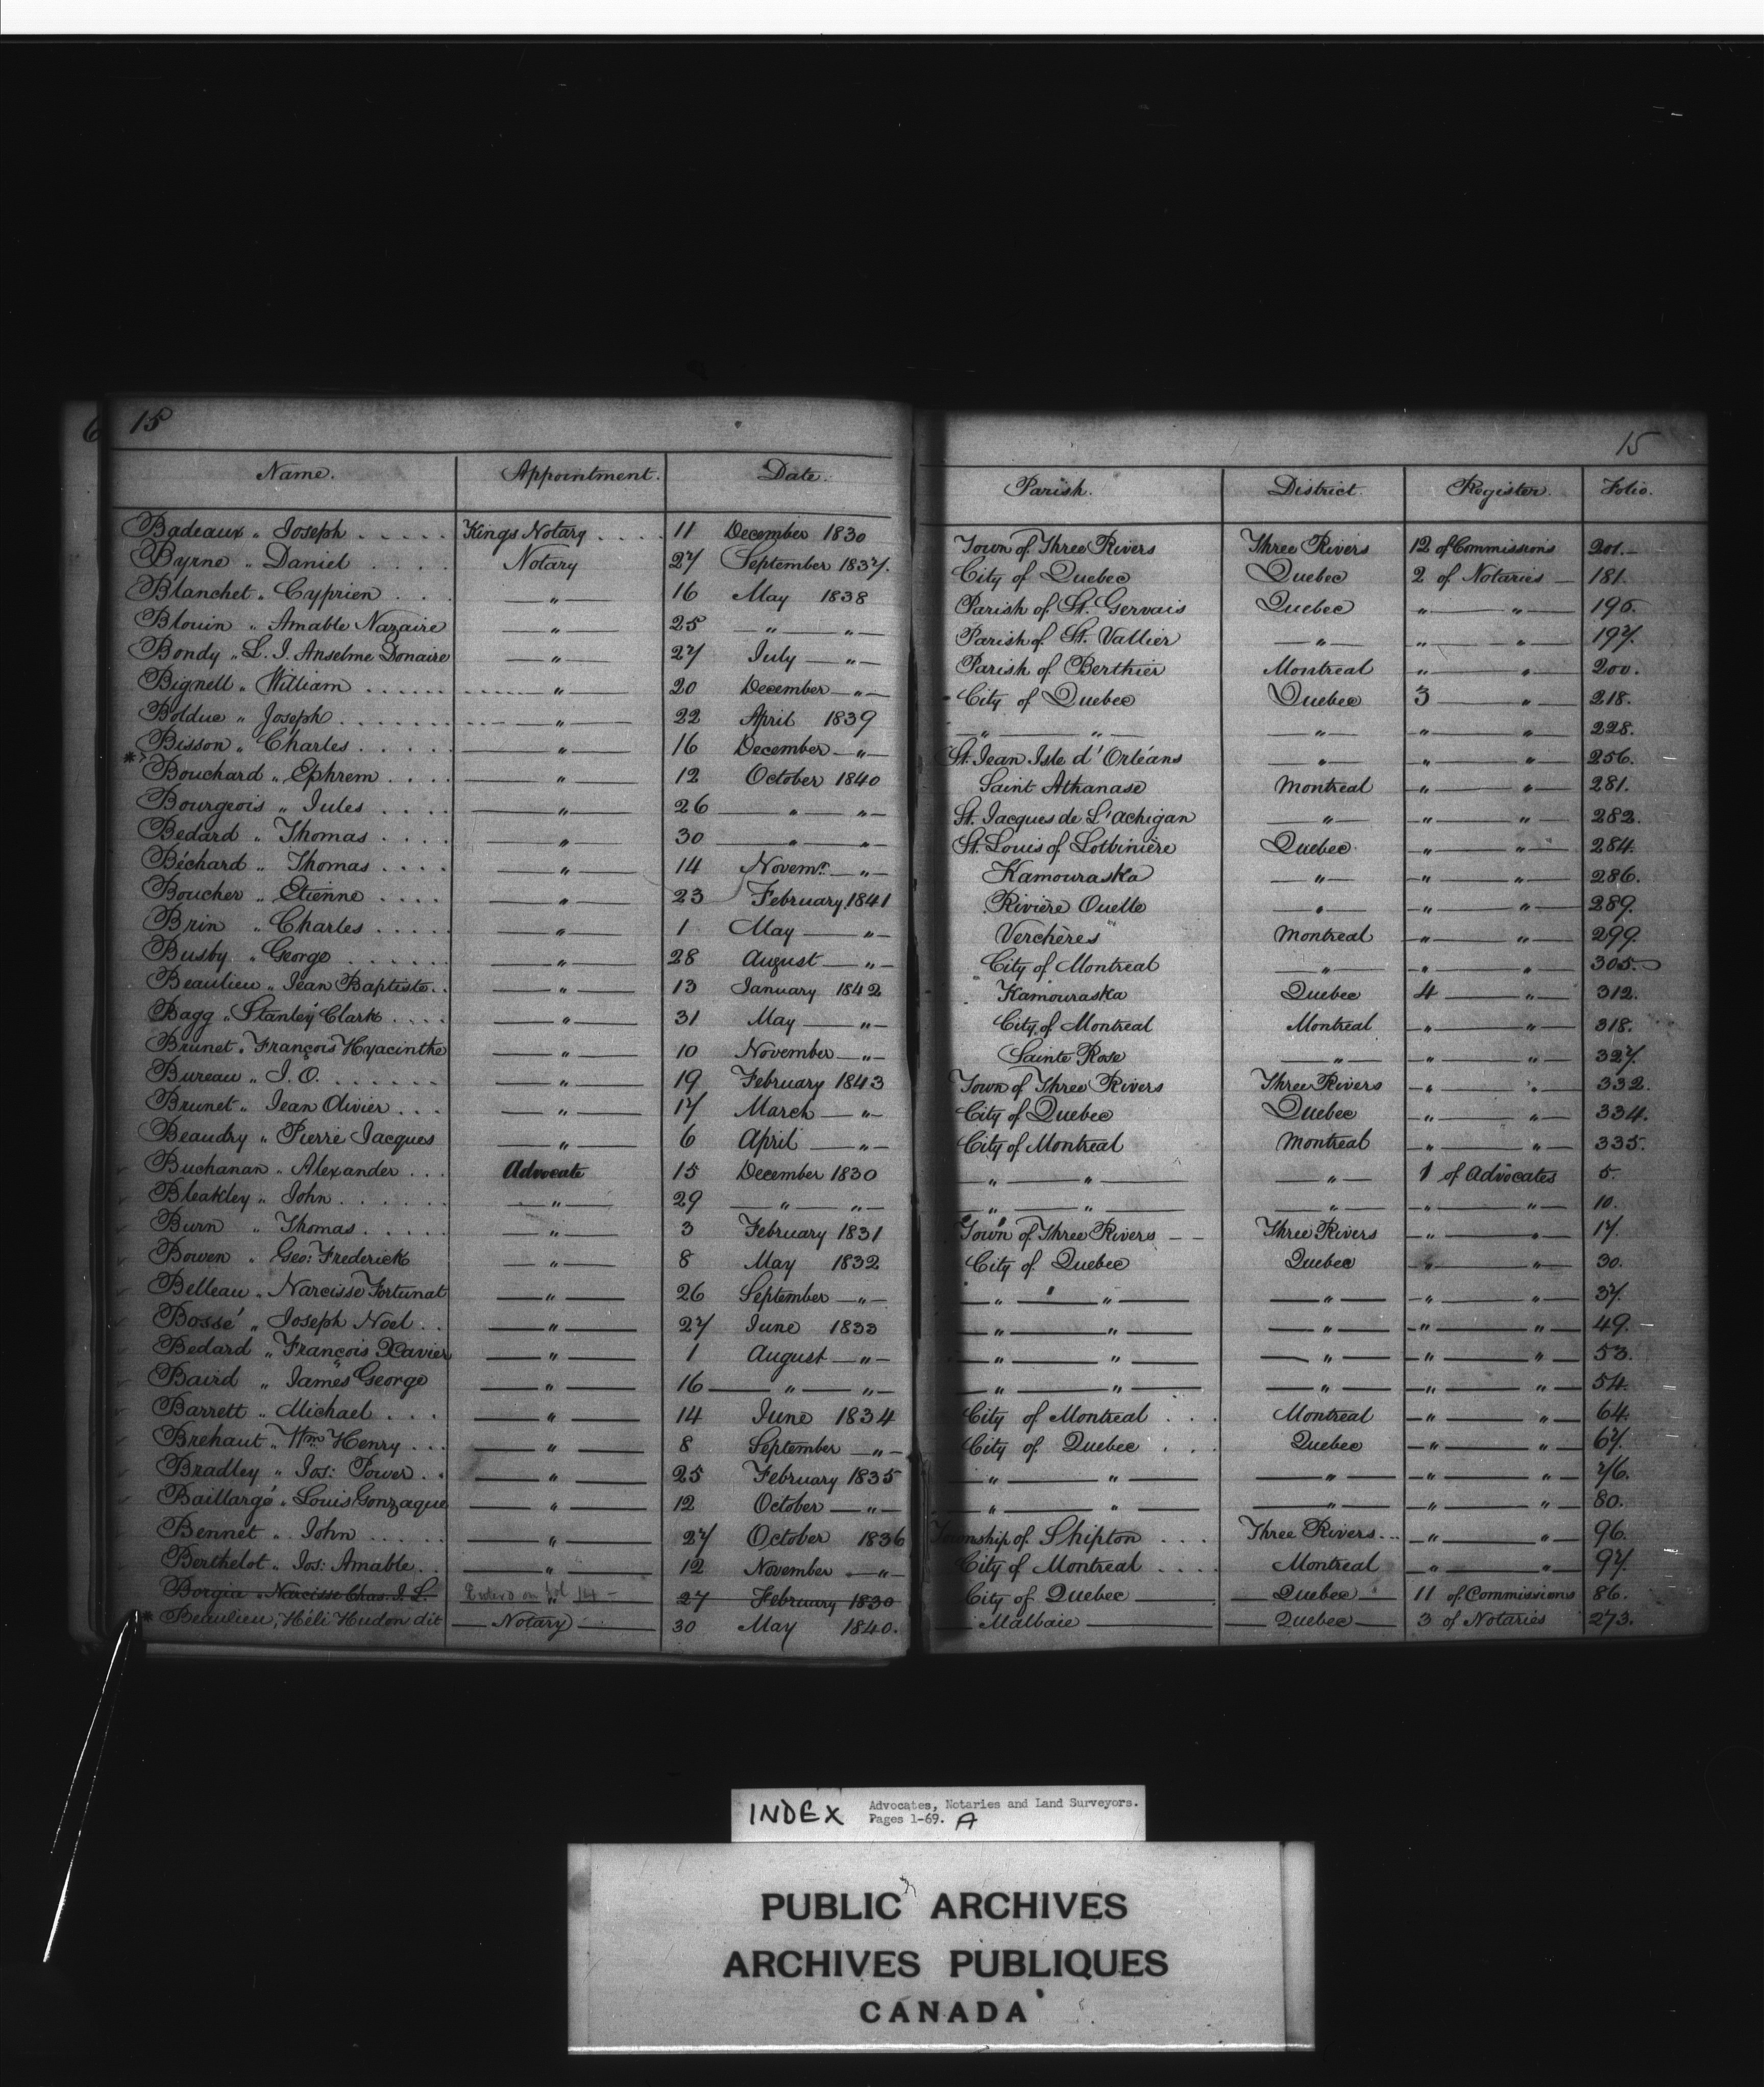 6 15 15
Name. Appointment. Date. Parish. District. Register. Folio.
Badeaux „ Joseph . . . . . Kings Notary . . . . 11 December 1830 Town of Three Rivers Three Rivers 12 of Commissions 201.—
Byrne „ Daniel . . . . Notary 27 September 1837. City of Quebec Quebec 2 of Notaries — 181.
Blanchet „ Cyprien . . . —„— 16 May 1838 Parish of St. Gervais Quebec „ — „ — 195.
Blouin „ Amable Nazaire —„— 25 — „ — „ — Parish of St. Vallier — „ — „ — „ — 197.
Bondy „ L. J. Anselme Donaire —„— 27 July — „ — Parish of Berthier Montreal „ — „ — 200.
Bignell „ William . . . . . . —„— 20 December — „ — City of Quebec Quebec 3 — „ — 218.
Bolduc „ Joseph . . . . . . . —„— 22 April 1839 — „ — „ — — „ — „ — „ — 228.
Bisson „ Charles . . . . . —„— 16 December — „ — St. Jean Isle d'Orléans — „ — „ — „ — 256.
* Bouchard „ Ephrem . . . . —„— 12 October 1840 Saint Athanase Montreal „ — „ — 281.
Bourgeois „ Jules . . . . —„— 26 — „ — „ — St. Jacques de L'achigan — „ — „ — „ — 282.
Bedard „ Thomas . . . . —„— 30 — „ — „ — St. Louis of Lotbinière Quebec „ — „ — 284.
Béchard „ Thomas . . . . —„— 14 Novemr. — „ — Kamouraska — „ — „ — „ — 286.
Boucher „ Etienne . . . . —„— 23 February 1841 Rivière Ouelle — „ — „ — „ — 289.
Brin „ Charles . . . . . —„— 1 May — „ — Verchères Montreal „ — „ — 299.
Busby „ George . . . . . . —„— 28 August — „ — City of Montreal — „ — „ — „ — 305.
Beaulieu „ Jean Baptiste . . —„— 13 January 1842 Kamouraska Quebec 4 — „ — 312.
Bagg „ Stanley Clark . . . . —„— 31 May — „ — City of Montreal Montreal „ — „ — 318.
Brunet „ François Hyacinthe —„— 10 November — „ — Sainte Rose — „ — „ — „ — 327.
Bureau „ J. O. . . . . . . —„— 19 February 1843 Town of Three Rivers Three Rivers „ — „ — 332.
Brunet „ Jean Olivier . . . —„— 17 March — „ — City of Quebec Quebec „ — „ — 334.
Beaudry „ Pierre Jacques —„— 6 April — „ — City of Montreal Montreal „ — „ — 335.
Buchanan „ Alexander . . . Advocate 15 December 1830 — „ — „ — — „ — 1 of Advocates 5.
Bleakley „ John . . . . . . —„— 29 — „ — „ — — „ — „ — — „ — „ — „ — 10.
Burn „ Thomas . . . . . —„— 3 February 1831 Town of Three Rivers — — Three Rivers „ — „ — 17.
Bowen „ Geo: Frederick —„— 8 May 1832 City of Quebec Quebec „ — „ — 30.
Belleau „ Narcisse Fortunat —„— 26 September — „ — — „ — „ — — „ — „ — „ — 37.
Bossé „ Joseph Noel . . —„— 27 June 1833 — „ — „ — — „ — „ — „ — 49.
Bedard „ François Xavier —„— 1 August — „ — — „ — „ — — „ — „ — „ — 53.
Baird „ James George —„— 16 — „ — „ — — „ — „ — — „ — „ — „ — 54.
Barrett „ Michael . . . —„— 14 June 1834 City of Montreal . . . Montreal „ — „ — 64.
Brehaut „ Wm Henry . . . —„— 8 September — „ — City of Quebec . . . Quebec „ — „ — 67.
Bradley „ Jos: Power . . —„— 25 February 1835 — „ — „ — — „ — „ — „ — 76.
Baillargé „ Louis Gonzague —„— 12 October — „ — — „ — „ — — „ — „ — „ — 80.
Bennet „ John . . . . . —„— 27 October 1836 Township of Shipton . . . Three Rivers . . . „ — „ — 96.
Berthelot „ Jos: Amable . . —„— 12 November — „ — City of Montreal . . . . Montreal „ — „ — 97.
Borgia „ Narcisse Chas. J. L. Entered on fol 14 — 27 February 1830 City of Quebec — Quebec — 11 of Commissions 86.
* Beaulieu, Héli Hudon dit — Notary — 30 May 1840. — Malbaie — Quebec — 3 of Notaries 273.
INDEX Advocates, Notaries and Land Surveyors.
Pages 1-69. A
PUBLIC ARCHIVES
ARCHIVES PUBLIQUES
CANADA